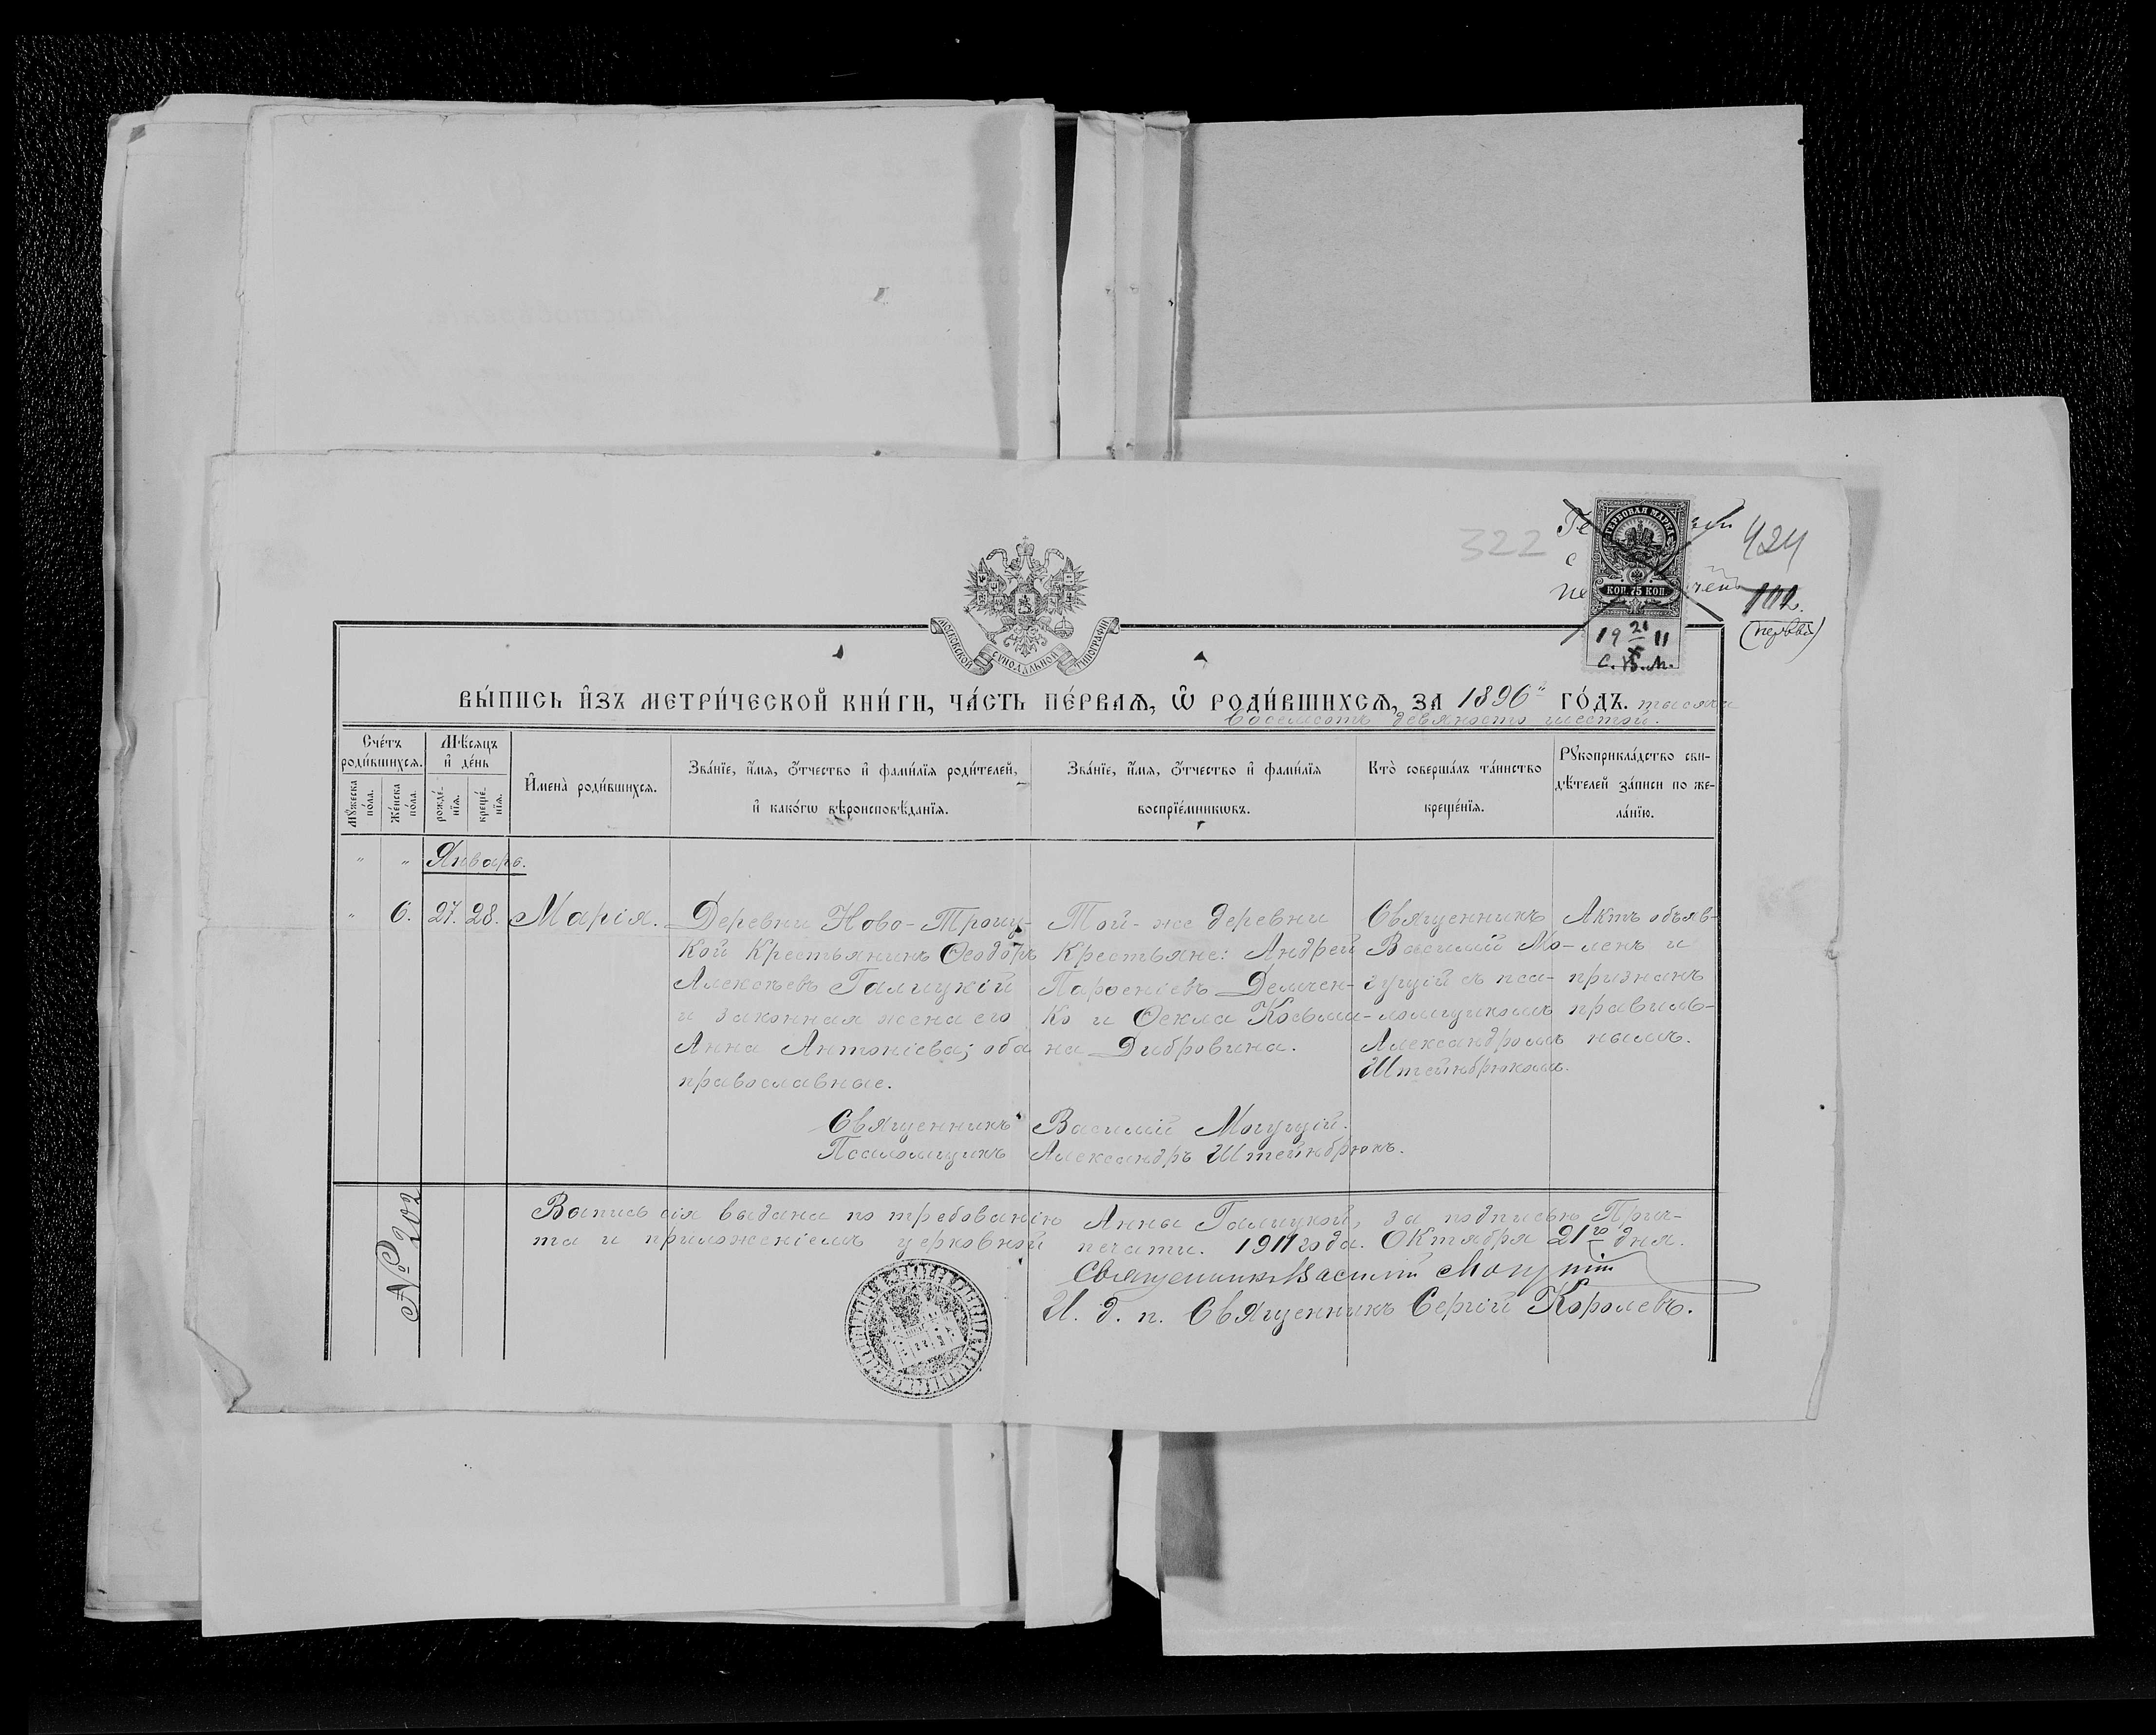 322
424
ГЕРБОВАЯ МАРКА
КОП. 75 КОП.
102.
(первый)
19 21/X 11
С. В. М.
МОСКОВСКОЙ СУНОДАЛЬНОЙ ТИПОГРАФІИ
ВЫ́ПИСЬ И҆ЗЪ МЕТРИ́ЧЕСКОЙ КНИ́ГИ, ЧА́СТЬ ПЕ́РВАѦ, Ѡ҆ РОДИ́ВШИХСѦ, ЗА 1896" ГО́ДЪ. тысяча
восемсотъ девяносто шестой.
Сче́тъ роди́вшихсѧ.
Мꙋ́жеска по́ла.
Же́нска по́ла.
Мѣ́сѧцъ и҆ де́нь
рожде́нїѧ.
креще́нїѧ.
И҆мена̀ роди́вшихсѧ.
Зва́нїе, и҆́мѧ, ѻ҆́тчество и҆ фами́лїѧ роди́телей,
и҆ како́гѡ вѣроисповѣ́данїѧ.
Зва́нїе, и҆́мѧ, ѻ҆́тчество и҆ фами́лїѧ
воспрїе́мникѡвъ.
Кто̀ соверша́лъ та́инство
креще́нїѧ.
Рꙋкоприкла́дство сви-
дѣ́телей за́писи по же-
ла́нїю.
" " Январь.
" 6. 27. 28. Марія.
Деревни Ново-Троиц-
кой крестьянинъ Ѳеодоръ
Алексѣевъ Галицкій
и законная жена его
Анна Антоніева; оба
православные.
Той-же деревни
крестьяне: Андрей
Парѳеніевъ Демчен-
ко и Ѳекла Космми-
на Дибровина.
Священникъ
Василій Мо-
гущій съ пса-
ломщикомъ
Александромъ
Штейнбрюкомъ.
Актъ объяв-
ленъ и
признанъ
правиль-
нымъ.
Священникъ Василій Могущій.
Псаломщикъ Александръ Штейнбрюкъ.
№ 202
Вапись сія выдана по требованію Анны Галицкой, за подписью Прич-
та и приложеніемъ церковной печати. 1911 года. Октября 21го дня.
Священникъ Василій Могущій
И. д. п. Священникъ Сергій Королевъ.